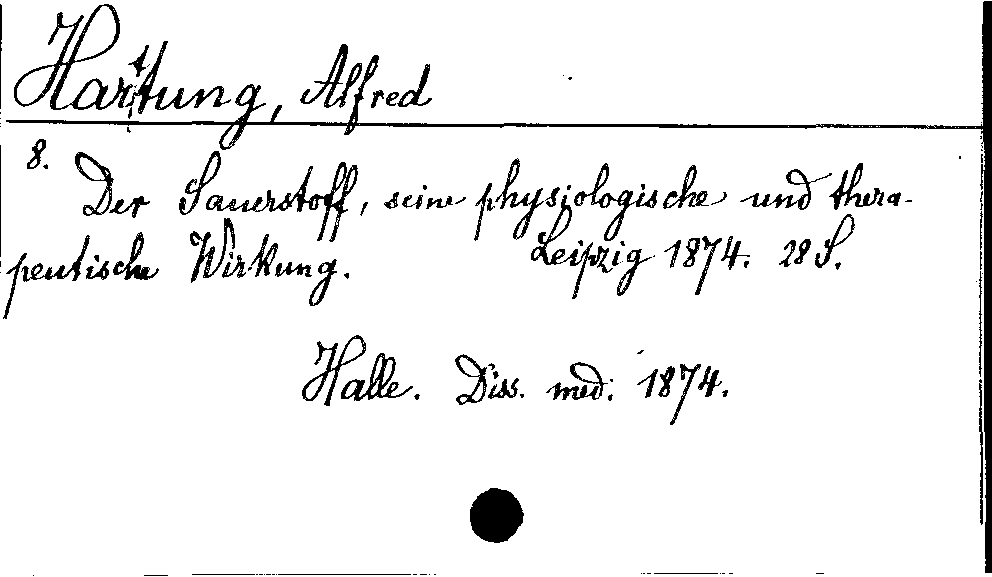 Hartung, Alfred
8.
Der Sauerstoff, seine physiologische und thera-
peutische Wirkung. Leipzig 1874. 28 S.
Halle. Diss. med. 1874.